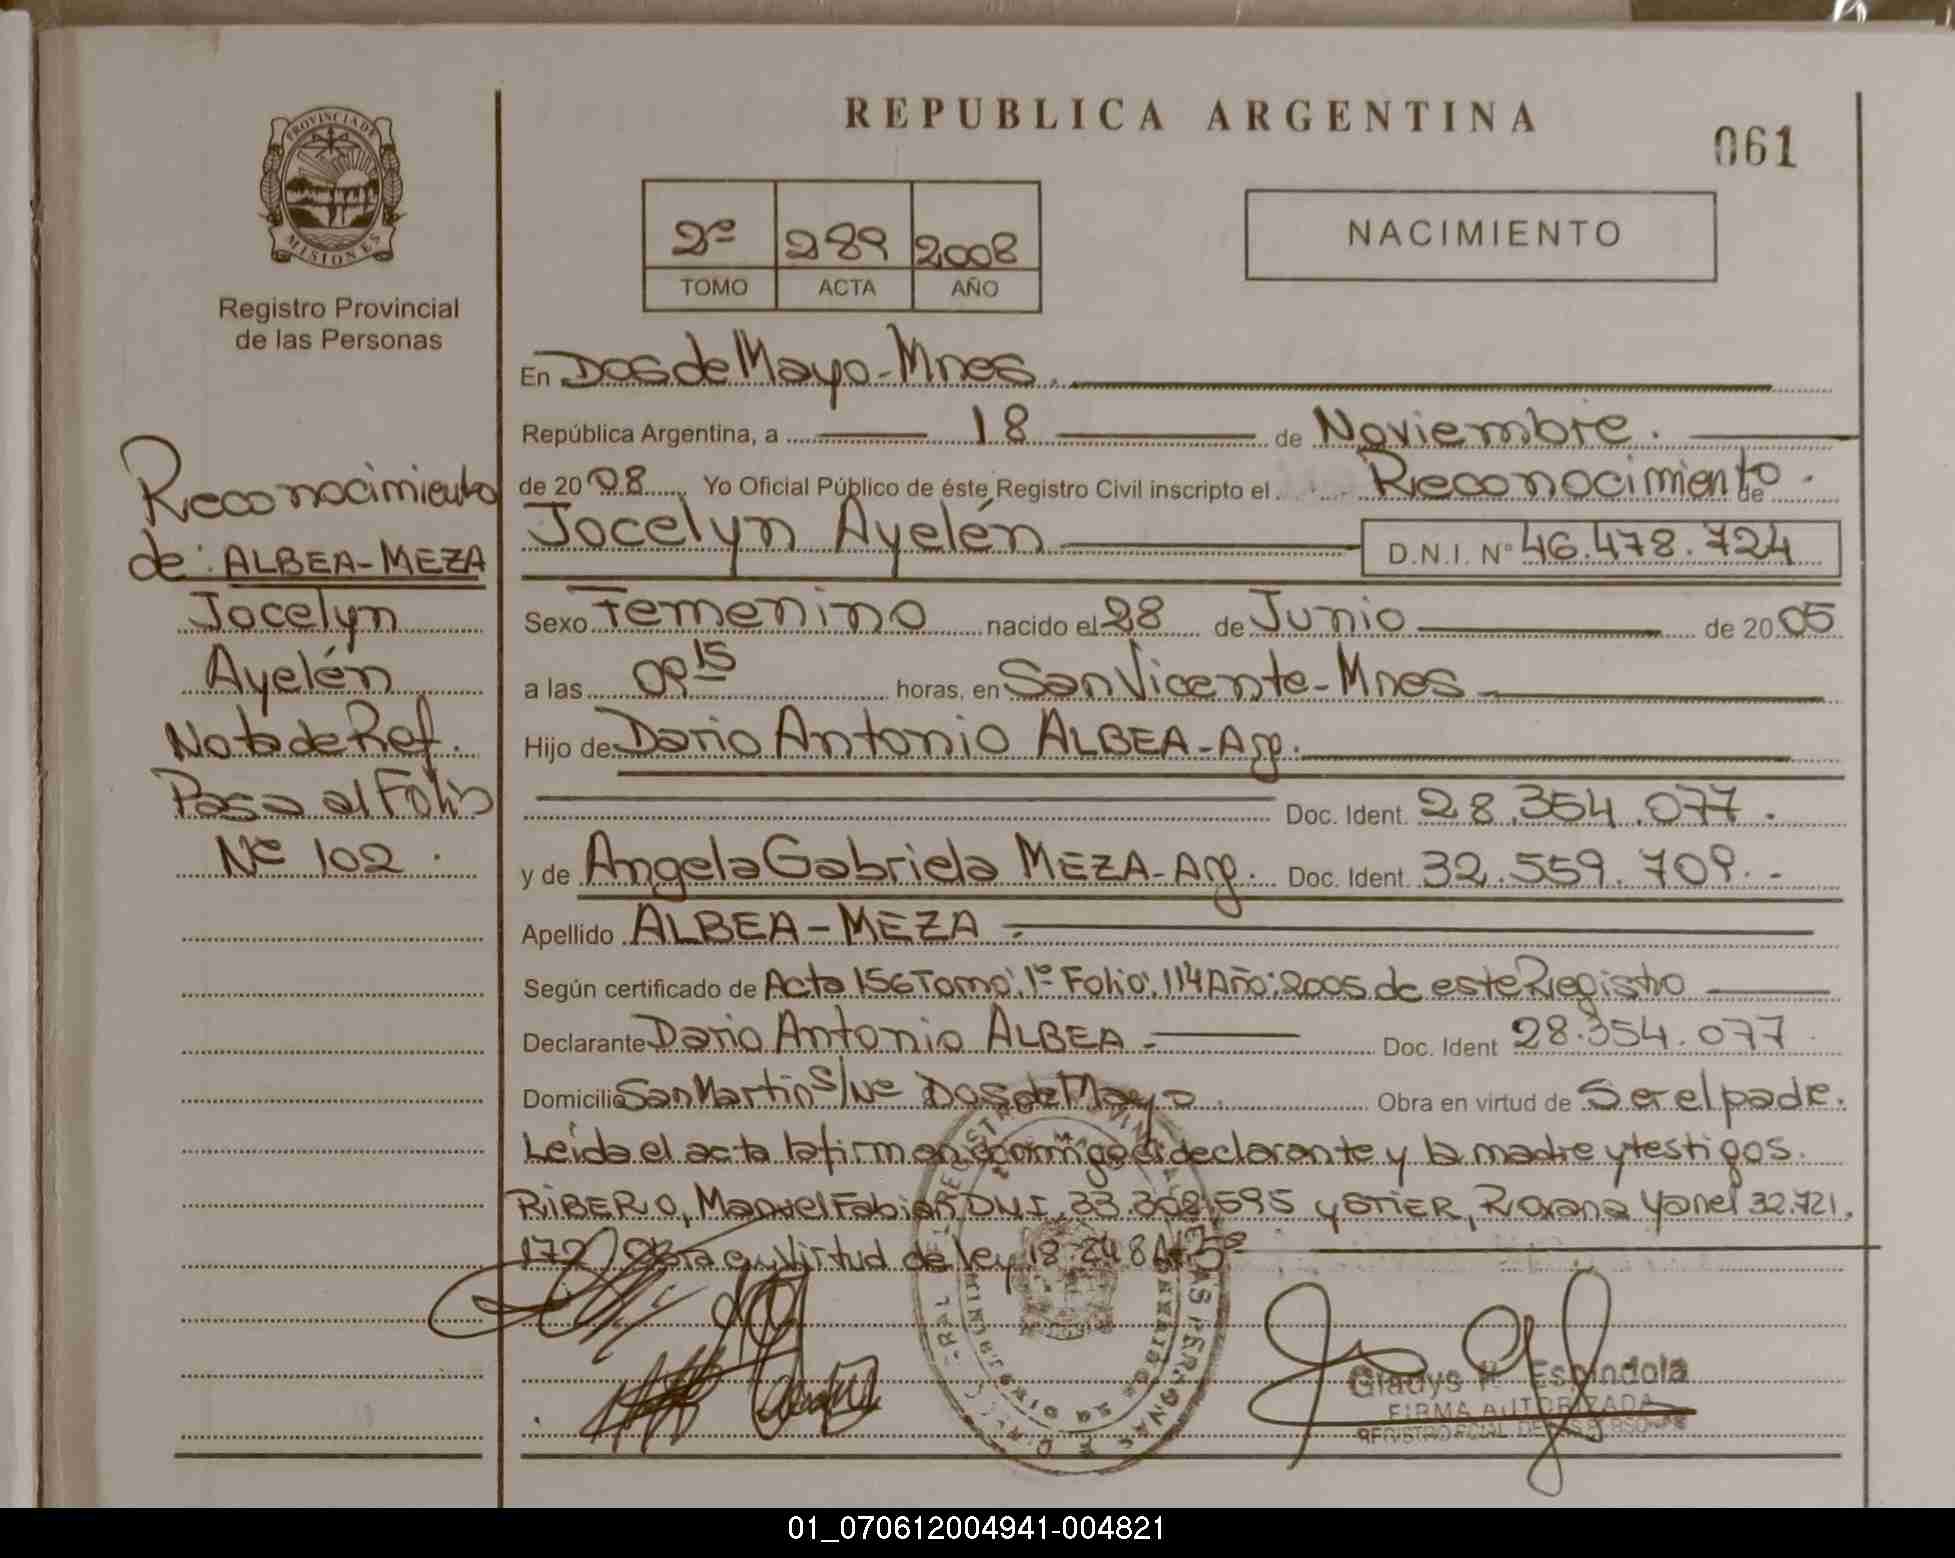 REPUBLICA ARGENTINA
061
PROVINCIA DE
MISIONES
Registro Provincial
de las Personas
2º 289 2008
TOMO ACTA AÑO
NACIMIENTO
Reconocimiento
de: ALBEA-MEZA
Jocelyn
Ayelén
Nota de Ref.
Pasa al Folio
Nº 102.
En Dos de Mayo-Mnes.
República Argentina, a 18 de Noviembre.
de 2008 Yo Oficial Público de éste Registro Civil inscripto el Reconocimiento de
Jocelyn Ayelén D.N.I. Nº 46.478.724
Sexo Femenino nacido el 28 de Junio de 2005
a las 09 15 horas, en San Vicente-Mnes
Hijo de Dario Antonio ALBEA-Arg.
Doc. Ident. 28.354.077.
y de Angela Gabriela MEZA-Arg. Doc. Ident. 32.559.709.-
Apellido ALBEA-MEZA.
Según certificado de Acta 156 Tomo: 1º Folio: 114 Año: 2005 de este Registro
Declarante Dario Antonio ALBEA.- Doc. Ident 28.354.077.
Domicilio San Martin S/Nº Dos de Mayo. Obra en virtud de Ser el padre.
Leída el acta la firman conmigo el declarante y la madre y testigos.
RIBERO, Manuel Fabian DNI. 33.308.595 y STIER, Roxana Yanel 32.721.
172) Obra en Virtud de ley 18.248 Art 5º
Gladys Espindola
FIRMA AUTORIZADA
01_070612004941-004821